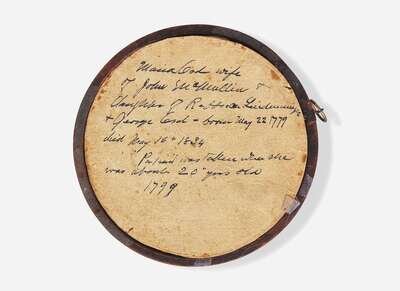 Maria Cook wife
of John McMullin &
daughter of
& George Cook - born May 22 1779
died May 16th 1834
"Portrait was taken when she
was about 20" years old
1799